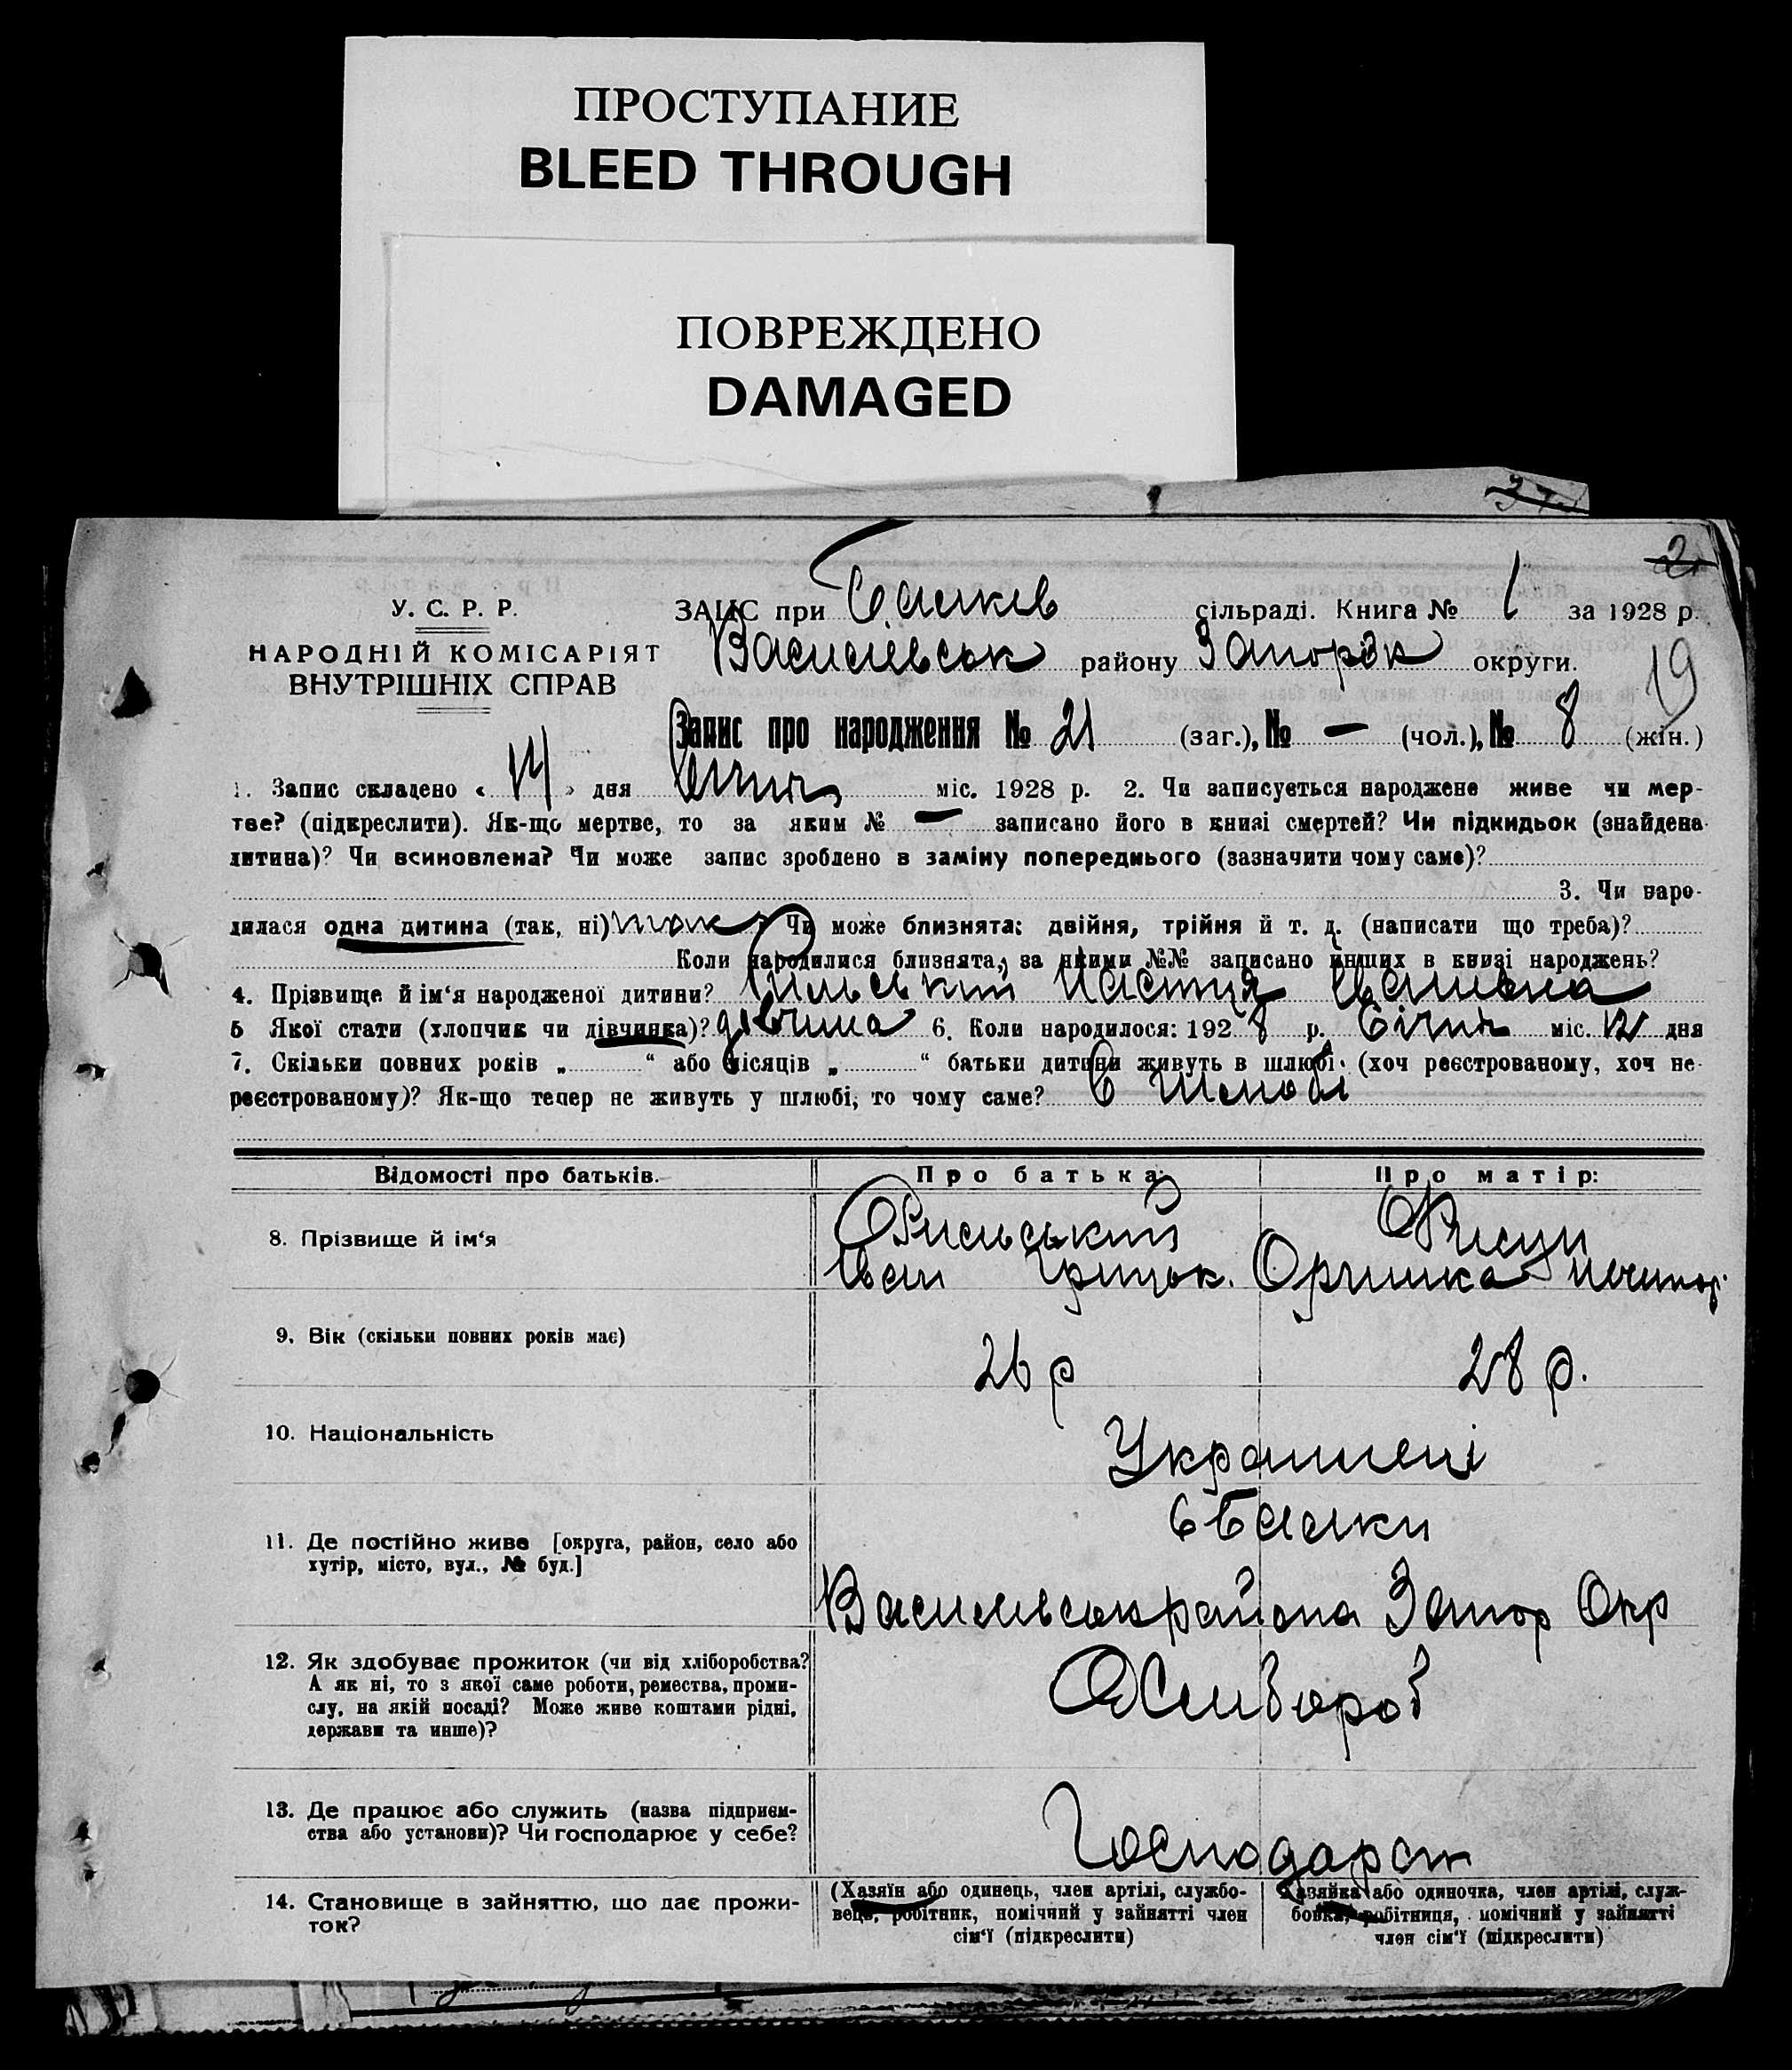 ПРОСТУПАНИЕ
BLEED THROUGH
ПОВРЕЖДЕНО
DAMAGED
37
2
У. С. Р. Р.
НАРОДНІЙ КОМІСАРІЯТ
ВНУТРІШНІХ СПРАВ
ЗАЦС при Балків сільраді. Книга № 1 за 1928 р.
Василівськ району Запоріж округи.
19
Запис про народження № 21 (заг.), № — (чол.), № 8 (жін.)
1. Запис складено « 14 » дня Січня міс. 1928 р. 2. Чи записується народжене живе чи мер-
тве? (підкреслити). Як-що мертве, то за яким № — записано його в книзі смертей? Чи підкидьок (знайдена
дитина)? Чи всиновлена? Чи може запис зроблено в заміну попереднього (зазначити чому саме)?
3. Чи наро-
дилася одна дитина (так, ні) так Чи може близнята: двійня, трійня й т. д. (написати що треба)?
Коли народилися близнята, за якими №№ записано інших в книзі народжень?
4. Прізвище й ім‘я народженої дитини? Настця Івановна
5 Якої стати (хлопчик чи дівчинка)? дівчина 6. Коли народилося: 192 8 р. Січня міс. 12 дня
7. Скільки повних років „ “ або місяців „ “ батьки дитини живуть в шлюбі (хоч реєстрованому, хоч не-
реєстрованому)? Як-що тепер не живуть у шлюбі, то чому саме? в шлюбі
Відомості про батьків. Про батька: Про матір:
8. Прізвище й ім‘я
Іван Грицьк. Оришка Ничипор.
9. Вік (скільки повних років має) 26 р 28 р.
10. Національність Украінці
11. Де постійно живе [округа, район, село або
хутір, місто, вул., № буд.]
с Балки
Василівськ района Запор Окр
12. Як здобуває прожиток (чи від хліборобства?
А як ні, то з якої саме роботи, ремества, проми-
слу, на якій посаді? Може живе коштами рідні,
держави та инше)?
Хлибороб
13. Де працює або служить (назва підприєм-
ства або установи)? Чи господарює у себе?
Господарст
14. Становище в зайняттю, що дає прожи-
ток?
(Хазяїн або одинець, член артілі, службо-
вець, робітник, помічний у зайнятті член
сім‘ї (підкреслити)
Хазяйка або одиночка, член артілі, служ-
бовка, робітниця, помічний у зайнятті
член сім‘ї (підкреслити)